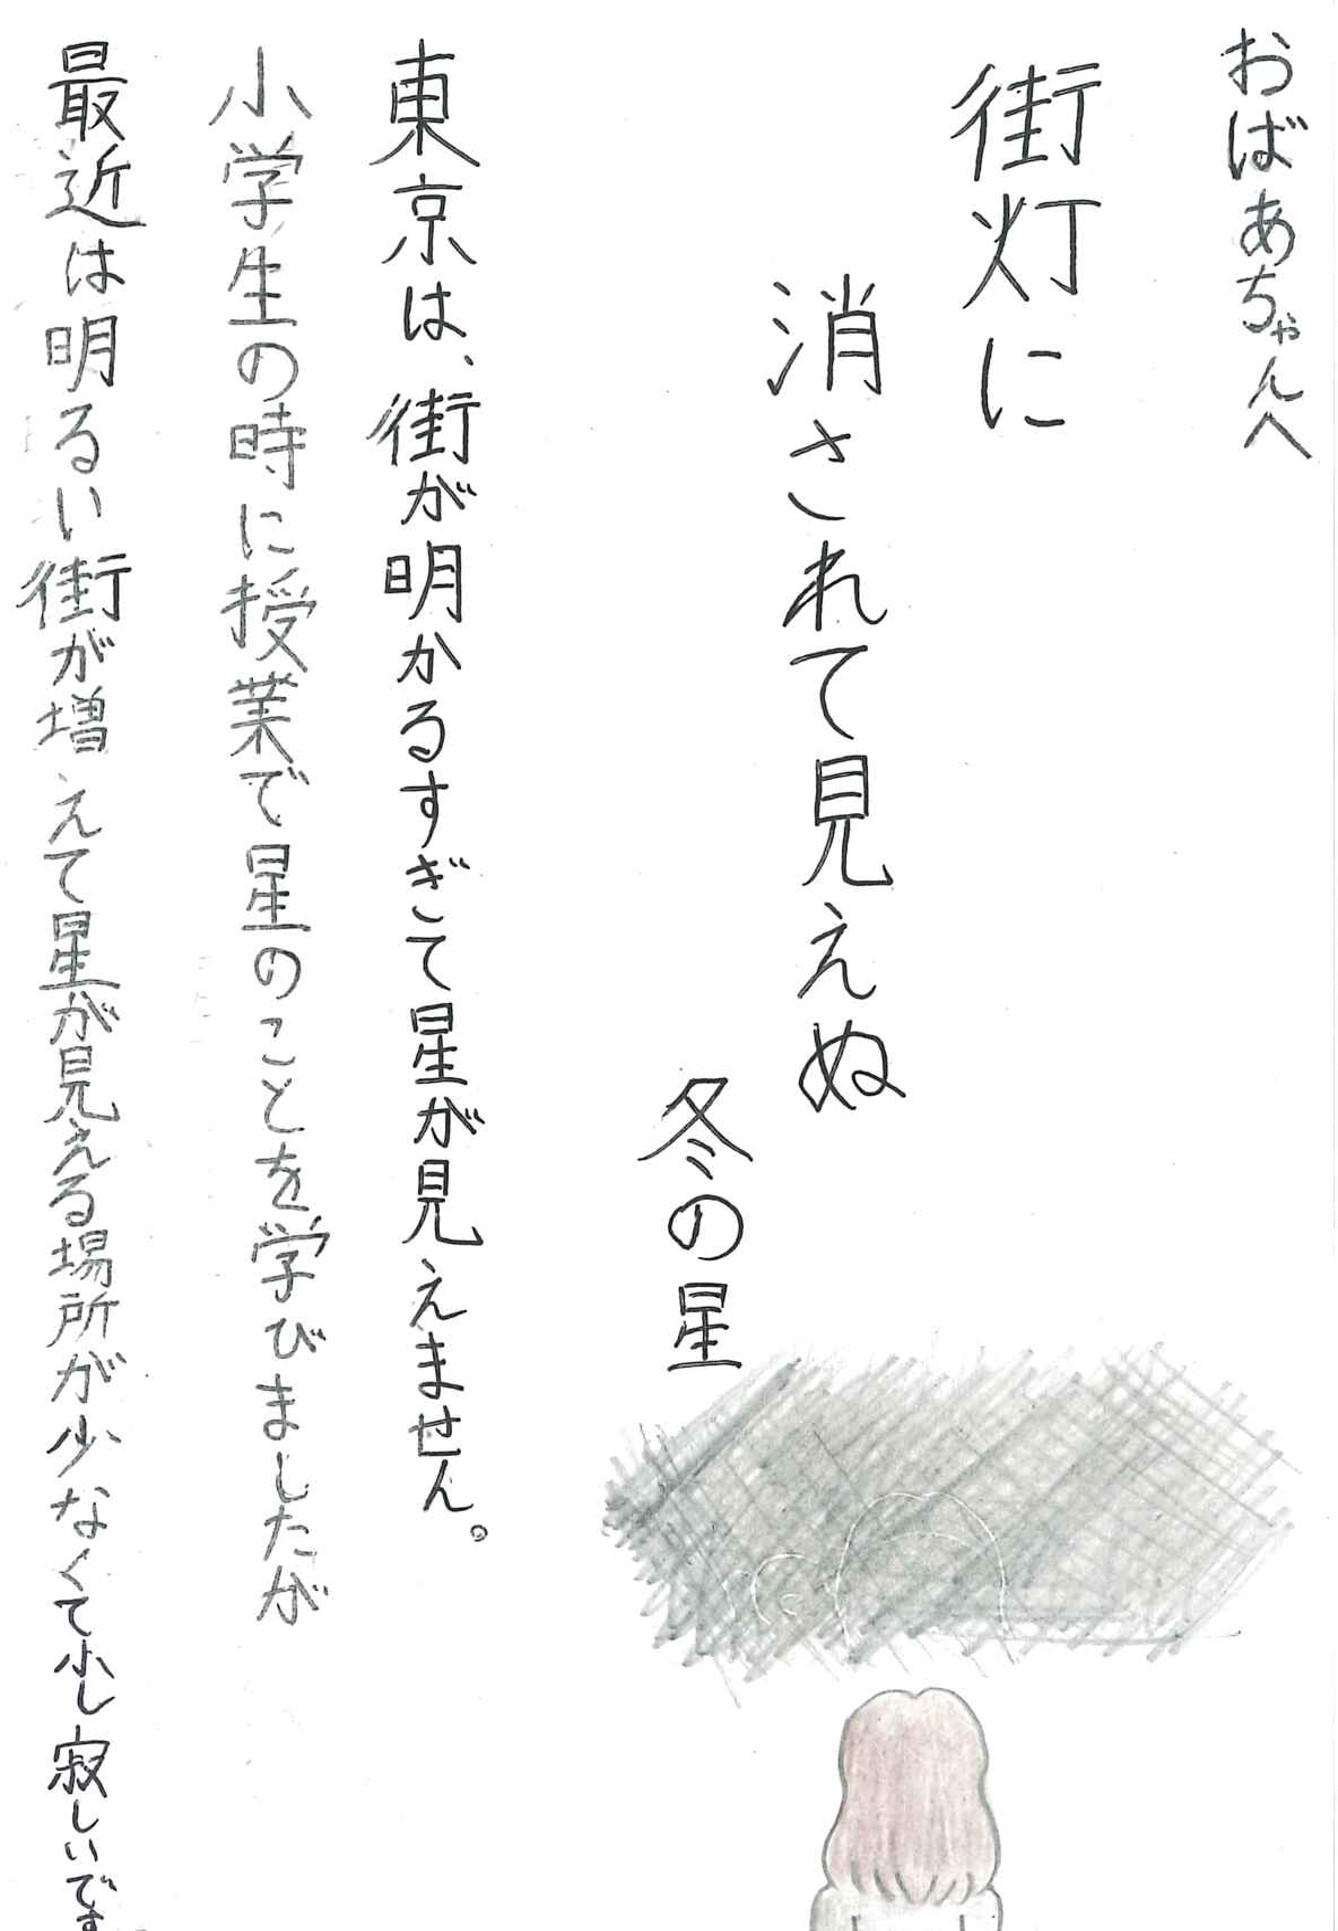 おばあちゃんへ
街灯に
消されて見えぬ
冬の星
東京は、街が明かるすぎて星が見えません。
小学生の時に授業で星のことを学びましたが
最近は明るい街が増えて星が見える場所が少なくて小し寂しいです